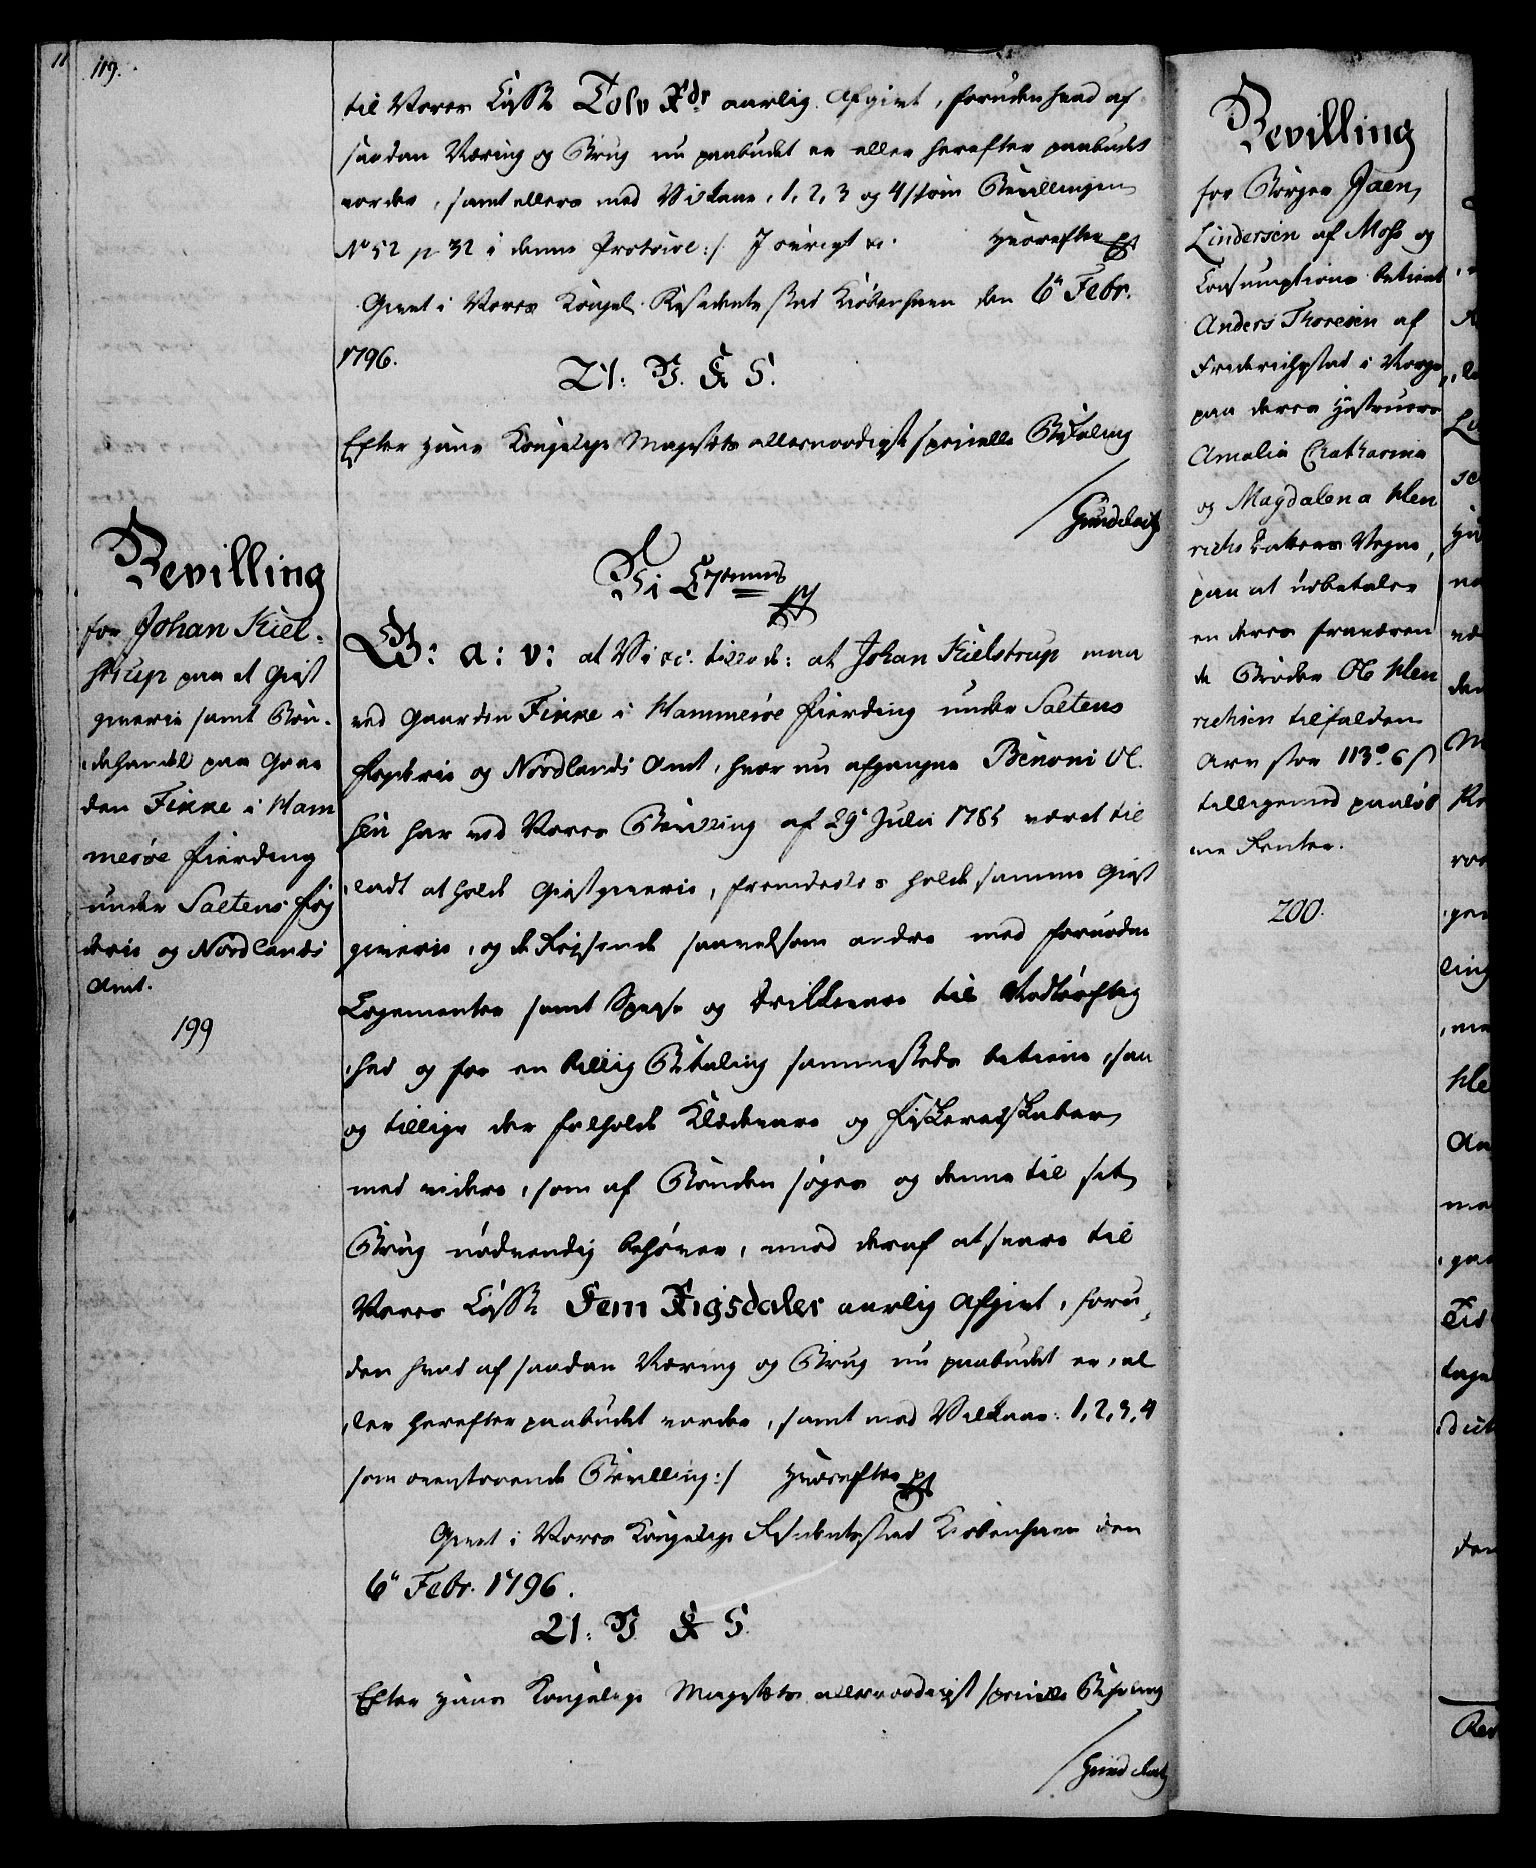 119.
til Vores Casse Tolv Rdr aarlig Afgivt, foruden hvad af
saadan Næring og Brug nu paabudet er eller herefter paabudet
vorder, samt ellers med Vilkaar, 1, 2, 3 og 4 /:som Bevillingen
No 52 p 32 i denne Protocol:/ I øvrigt &c. Hvorefter
Givet i Vores Kongel. Residents stad Kiøbenhavn den 6te Febr.
1796.
Efter Hans Kongelige Majestets allernaadigst specielle Befaling
Bevilling
for Johan Kiel-
strup paa at Giest
giverie samt Bon-
dehandel paa Gaar
den Finne i Ham
merøe Fierding
under Saltens Fog
derie og Nordlands
Amt.
199
G: a: v: at Vi &c. tillade: at Johan Kielstrup maa
ved Gaarden Finne i Hammerøe Fierding under Saltens
Fogderie og Nordlands Amt, hvor nu afgangne Benoni Ol-
sen har ved Vores Bevilling af 29de Julii 1785 været til
ladt at holde Giestgiverie, fremdeeles holde samme Giest
giverie, og de Reisende saavelsom andre med fornøden
Logementer samt Spise og Drikkevare til Nødtørftig
hed og for en billig Betaling sammesteds betiene, saa
og tillige der falholde Klædevare og Fiskeredskaber
med videre, som af Bonden søges og denne til sit
Brug nødvendig behøver, imod deraf at svare til
Vores Casse Fem Rigsdaler aarlig Afgivt, foru-
den hvad af saadan Næring og Brug nu paabudet er, el
ler herefter paabudet vorder, samt med Vilkaar: 1, 2, 3, 4
som ovenstaaende Bevilling:/ Hvorefter
Givet i Vores Kongelige Residentsstad Kiøbenhavn den
6te Febr. 1796.
Efter Hans Kongelige Majestets allernaadigst specielle Befaling
Bevilling
for Borger Jaen
Lindersen af Moss og
Consumptions betient
Anders Thoresen af
Friderichstad i Norge
paa deres Hustruers
Amalia Chatharina
og Magdalena Hen
richs Datters Vegne,
paa at udbetales
en deres fraværen
de Broder Ole Hen
richsen tilfalden
Arv stor 113 6
tilligemed paaløb
ne Renter.
200.